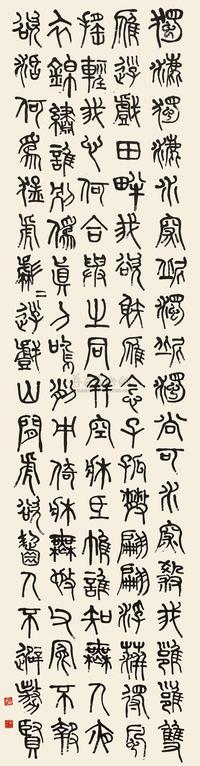 獨漉獨漉水深泥濁泥濁尚可水深殺我雝雝雙
雁游戲田畔我欲射雁念子孤散翩翩浮萍得風
搖輕我心何合與之同并空牀低帷誰知無人夜
衣錦繡誰別偽真刀鳴削中倚牀無施父冤不報
欲活何為猛虎游戲山間虎欲齧人不避豪賢